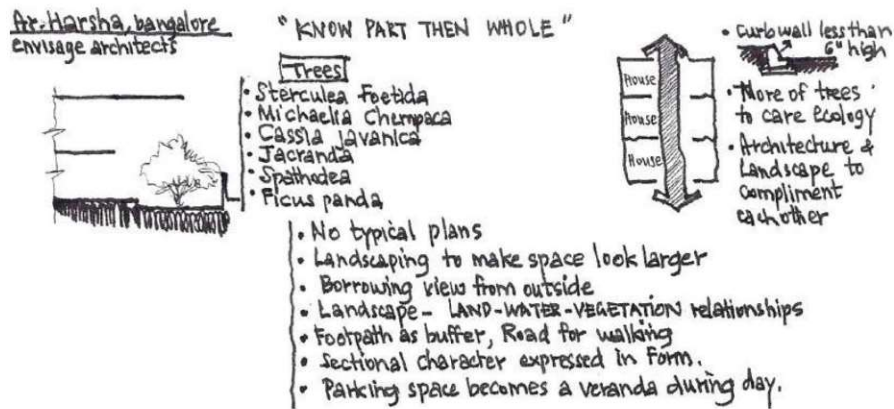 Ar. Harsha, bangalore
envisage architects
"KNOW PART THEN WHOLE"
Trees
• Sterculea Foetida
• Michaelia Chempaca
• Cassia javanica
• Jacranda
• Spathodea
• Ficus panda
House
House
House
• Curb wall less than
6" high
• More of trees
to care ecology
• Architecture &
Landscape to
compliment
each other
• No typical plans
• Landscaping to make space look larger
• Borrowing view from outside
• Landscape - LAND-WATER-VEGETATION relationships
• Footpath as buffer, Road for walking
• Sectional character expressed in Form.
• Parking space becomes a veranda during day.